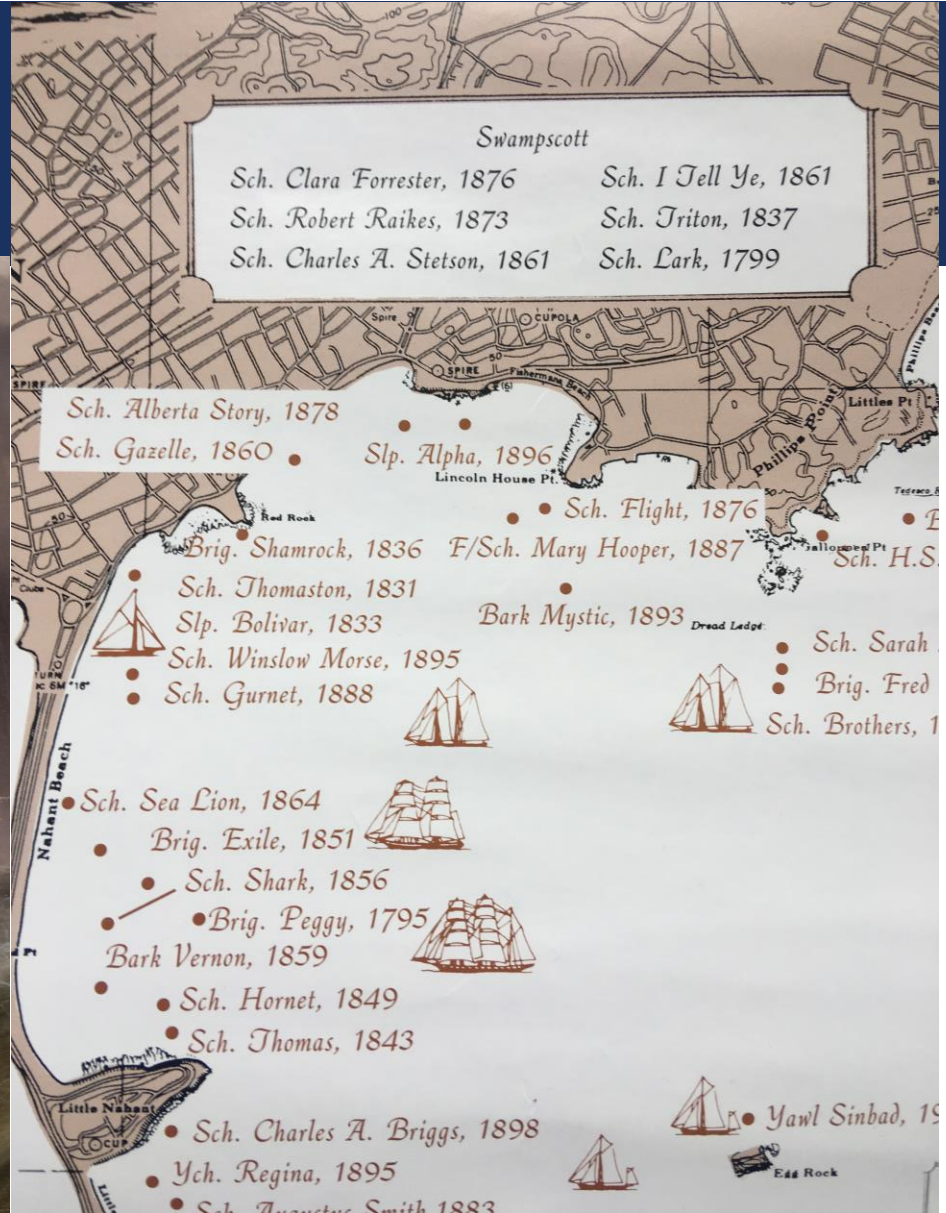 Swampscott
Sch. Clara Forrester, 1876
Sch. I Tell Ye, 1861
Sch. Robert Raikes, 1873
Sch. Triton, 1837
Sch. Charles A. Stetson, 1861
Sch. Lark, 1799
Spire
CUPOLA
SPIRE
SPIRE
50
Fishermans Beach
(6)
Phillips Beach
Littles Pt
Phillips Point
Sch. Alberta Story, 1878
Sch. Gazelle, 1860
Slp. Alpha, 1896
Lincoln House Pt.
Red Rock
50
Sch. Flight, 1876
Tedesco
Brig. Shamrock, 1836
F/Sch. Mary Hooper, 1887
Galloupes Pt
Sch. H.S.
Sch. Thomaston, 1831
Clubs
Bark Mystic, 1893
Slp. Bolivar, 1833
Dread Ledge
Sch. Sarah
Sch. Winslow Morse, 1895
Brig. Fred
Sch. Gurnet, 1888
Sch. Brothers, 1
Nahant Beach
Sch. Sea Lion, 1864
Brig. Exile, 1851
Sch. Shark, 1856
Brig. Peggy, 1795
Bark Vernon, 1859
Sch. Hornet, 1849
Sch. Thomas, 1843
Little Nahant
CUP
Sch. Charles A. Briggs, 1898
Yawl Sinbad, 19
Egg Rock
Ych. Regina, 1895
Sch. Augustus Smith 1883
Little